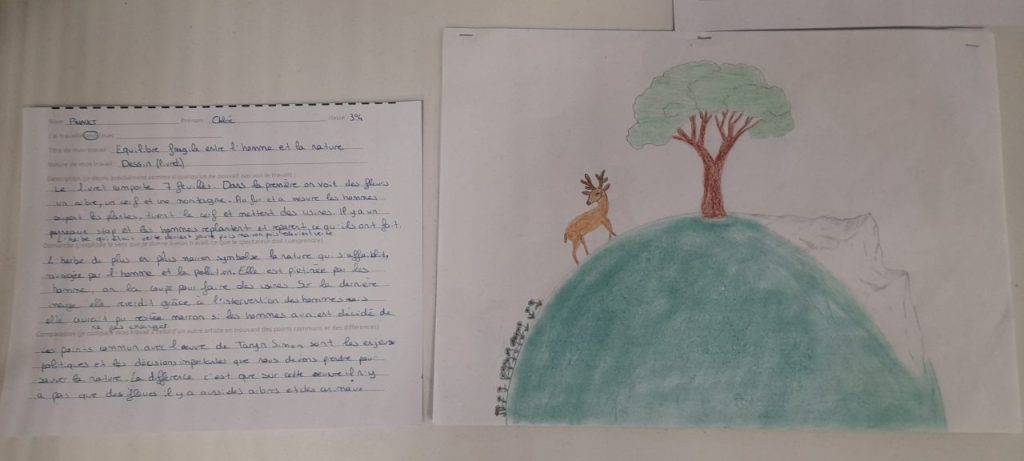 Nom : PINAULT Prénom : Chloé classe : 3°4
J'ai travaillé seul
Titre de mon travail : Equilibre fragile entre l'homme et la nature
Nature de mon travail : Dessin (livret)
Description (je décris précisément comme si quelqu'un ne pouvait pas voir le travail) :
Le livret comporte 7 feuilles. Dans la première on voit des fleurs
un arbre, un cerf et une montagne. Au fur et a mesure les hommes
coupent les plantes, tuent le cerf et mettent des usines. Il y a un
panneau stop et les hommes replantent et réparent ce qu'ils ont fait.
L'herbe qui était verte devient jaune puis marron puis redevient verte
Démarche (j'explique le sens que j'ai donné à mon travail, ce que le spectateur doit comprendre)
L'herbe de plus en plus marron symbolise la nature qui s'affaiblit,
ravagée par l'homme et la pollution. Elle est piétinée par les
homme, on la coupe pour faire des usines. Sur la dernière
image elle reverdit grâce à l'intervention des hommes mais
elle aurait pu restée marron si les hommes avaient décidé de
ne pas changer
Comparaison (je compare mon travail à celui d'un autre artiste en trouvant des points communs et des différences)
Les points commun avec l'œuvre de Taryn Simon sont les enjeux
politiques et les décisions importantes que nous devons prendre pour
sauver la nature. La différence c'est que sur cette oeuvre il n'y
a pas que des fleurs il y a aussi des arbres et des animaux